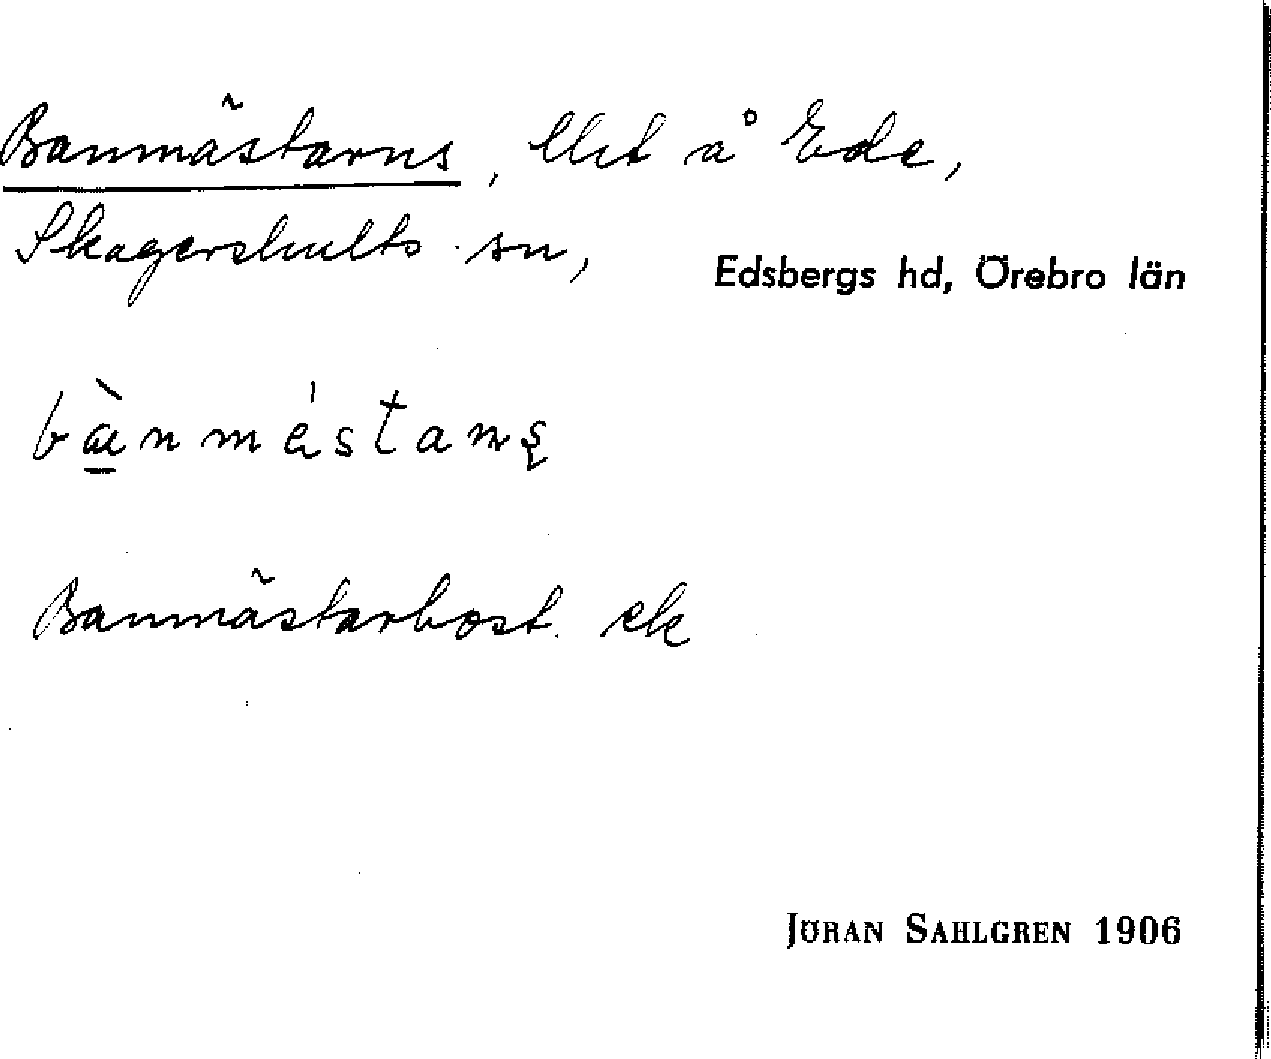 Banmästarns, lht å Ede,
Skagershults sn, Edsbergs hd, Örebro län
Banmästarbost. ek
JÖRAN SAHLGREN 1906